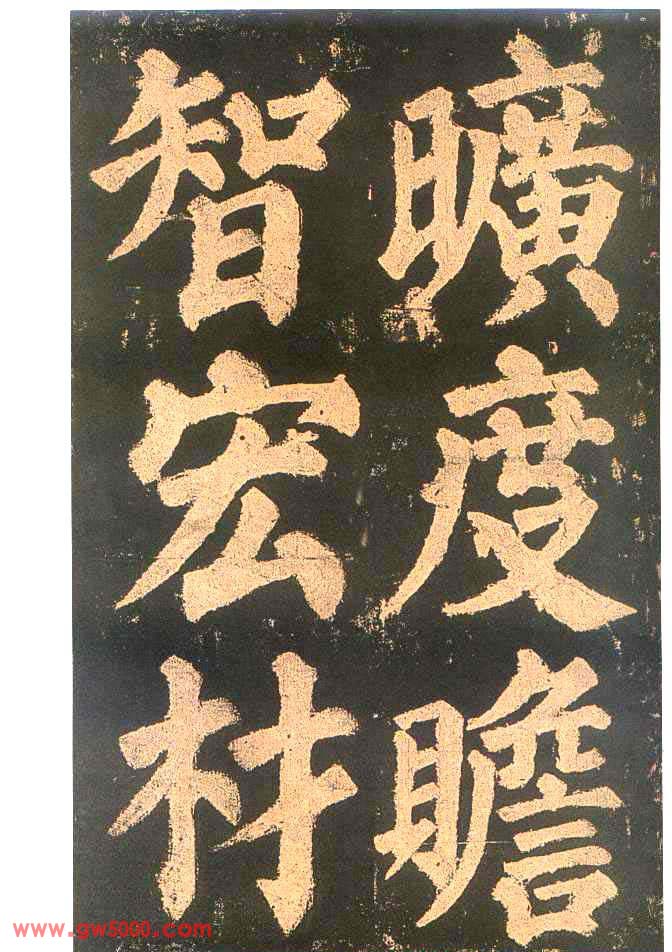 曠度瞻
智宏材
www.gw5000.com